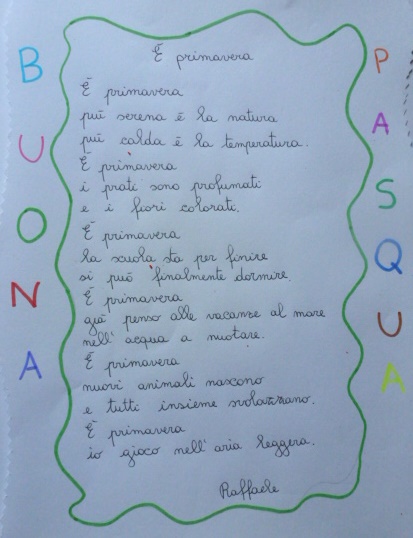 BUONA
PASQUA
È primavera
È primavera
puī serena ē la natura
puī calda ē la temperatura.
È primavera
i prati sono profumati
e i fiori colorati.
È primavera
la scuola sta per finire
si può finalmente dormire.
È primavera
già penso alle vacanse al mare
nell'acqua a nuotare.
È primavera
nuovi animali nascono
e tutti insieme svolazzano.
È primavera
io gioco nell'aria leggera.
Raffaele